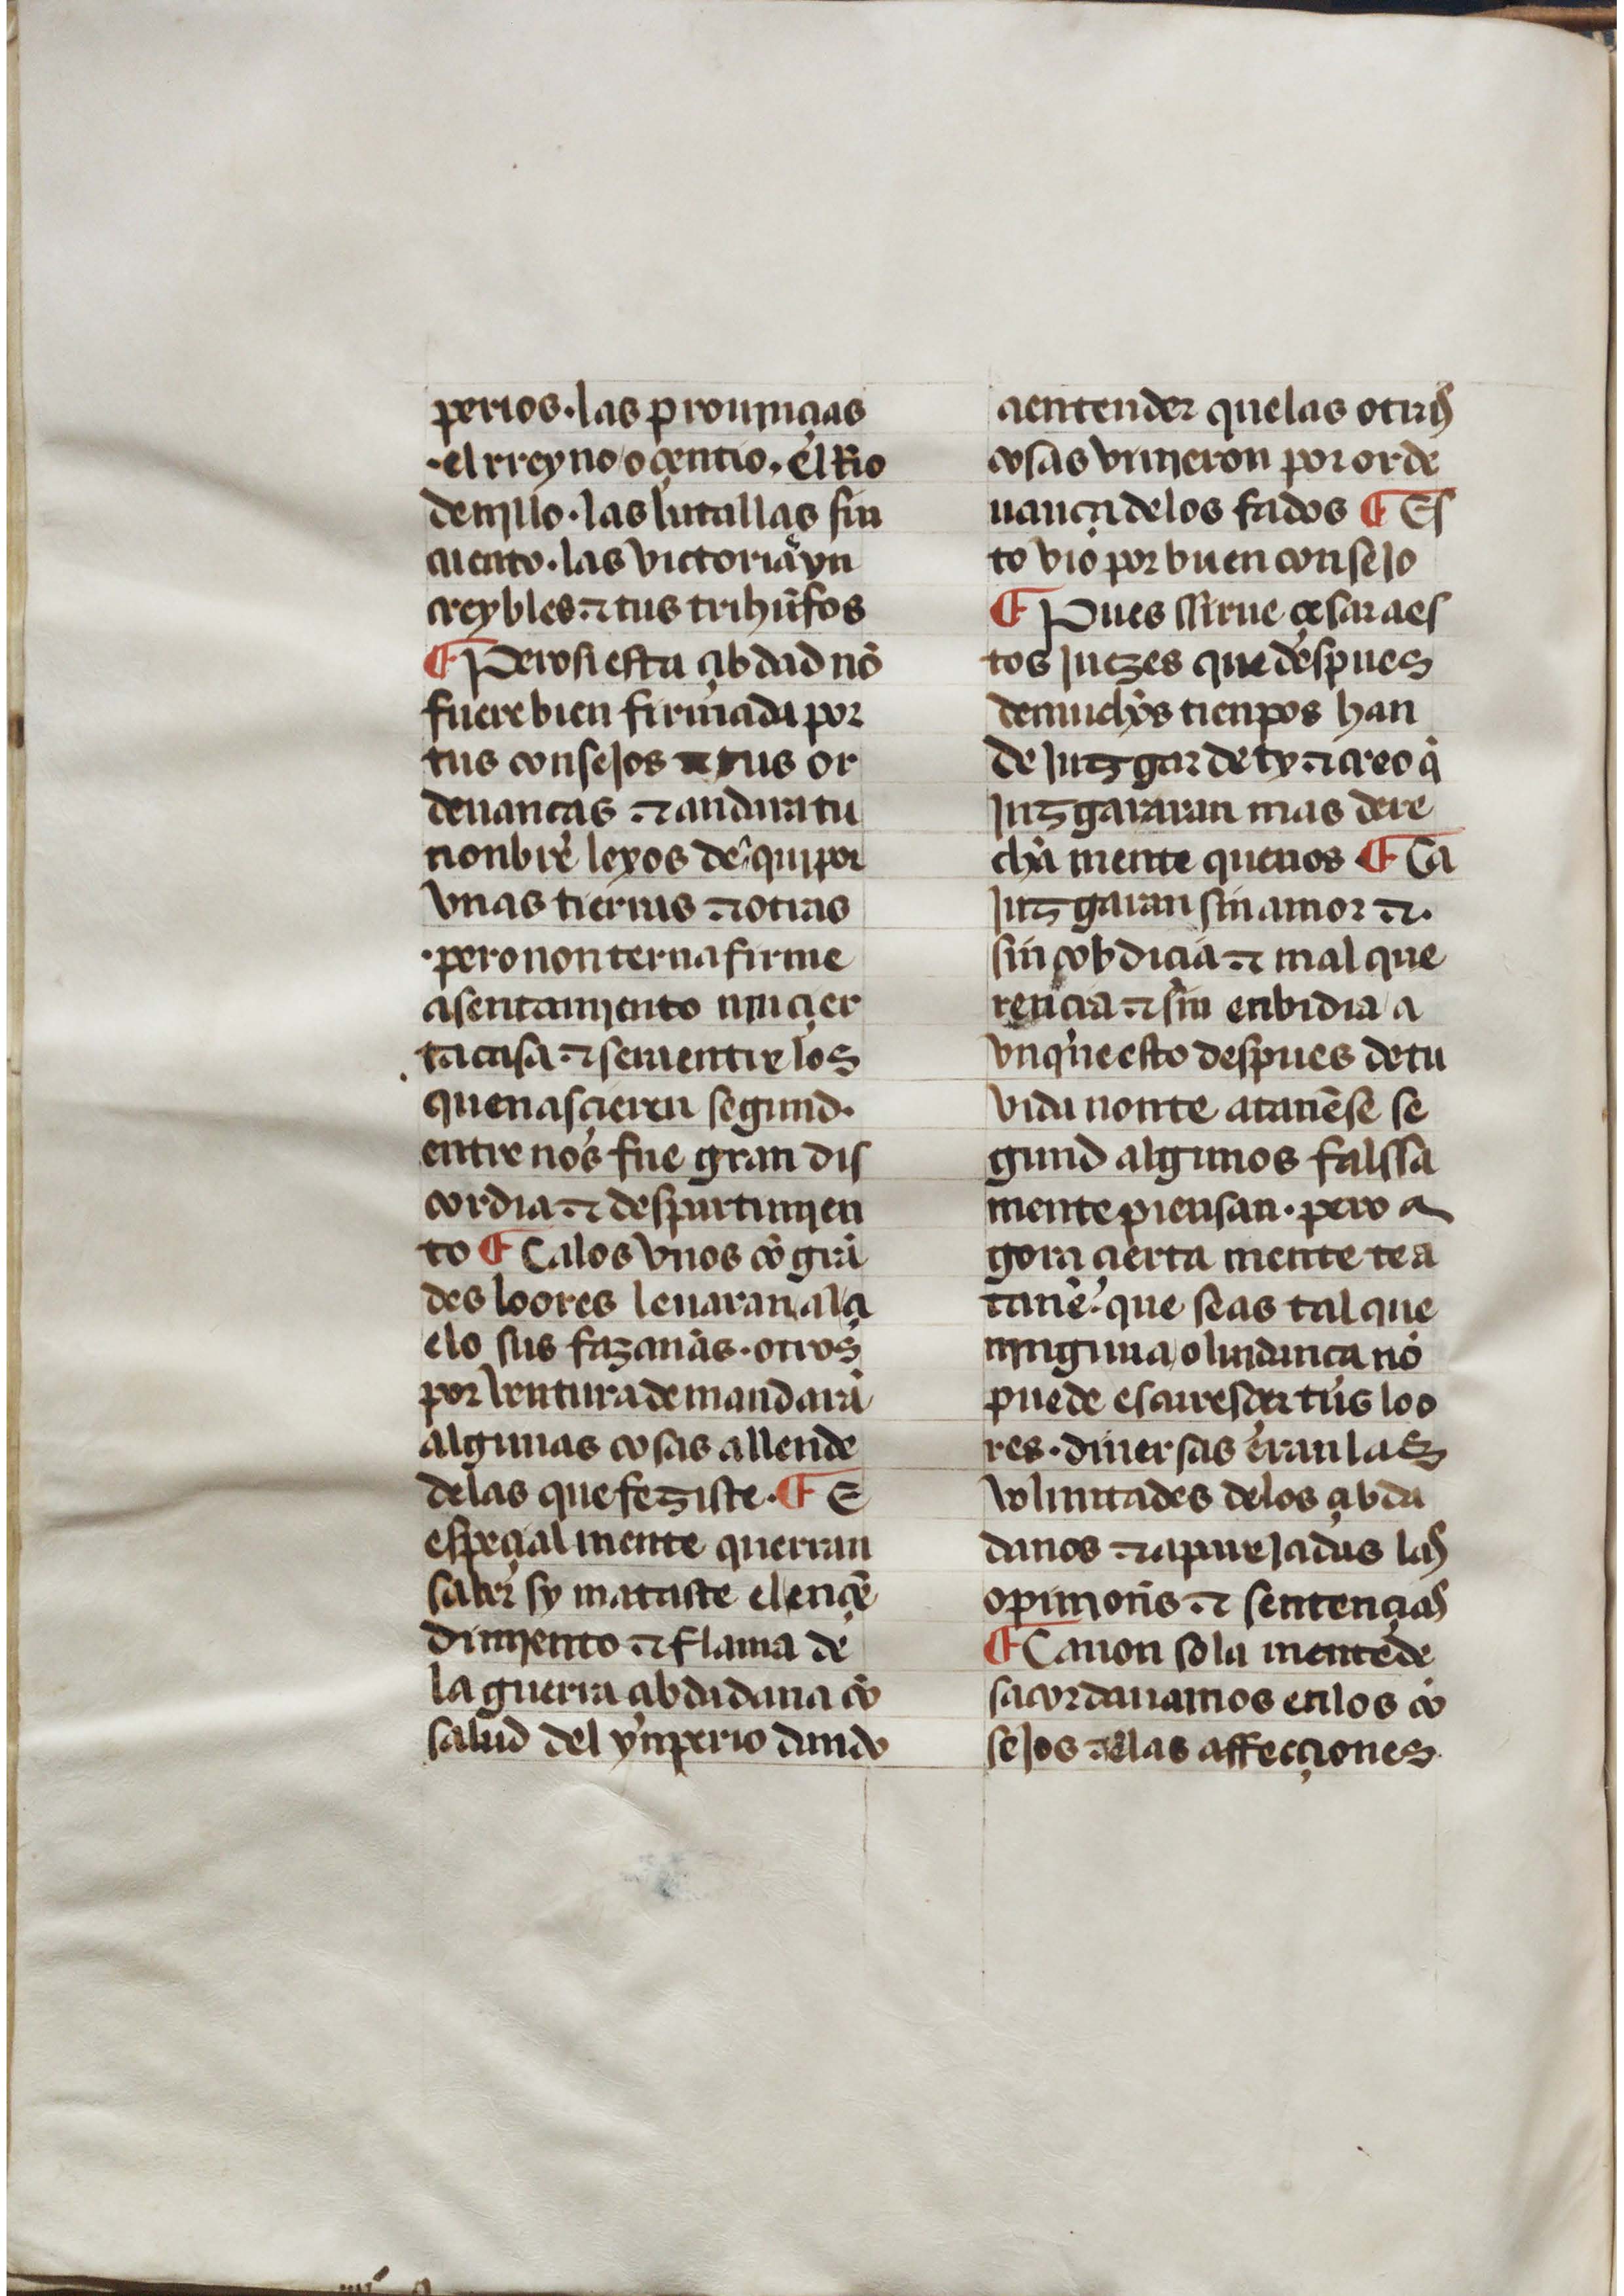 perios · las prouinçias
· el rreyno oçentio . el Rio
de nillo · las batallas sin
cuento · las victorias yn
creybles ⁊ tus trihũfos
¶ Pero si esta çibdad nõ
fuere bien firmada por
tus consejos ⁊ tus or
denanças ⁊ andara tu
nonbre lexos de aqui por
vnas tierras ⁊ otras
· pero non terna firme
asentamiento nin çier
ta casa ⁊ sera entre los
que nasçieren segund ·
entre nos fue gran dis
cordia ⁊ despartimien
to ¶ Ca los vnos cõ grã
des loores leuaran al çi
elo sus fazanãs · otros
por ventura demandarã
algunas cosas allende
delas que feziste · ¶ E
espeçial mente querran
saber sy mataste el ençẽ
dimiento ⁊ flama de
la guerra çibdadana cõ
salud del ynperio dando
a entender que las otras
cosas vinieron por orde
nança delos fados ¶ Es
to vio por buen consejo
¶ Pues ssirue çesar a es
tos juezes que despues
de muchos tienpos han
de juzgar de ty ⁊ creo q̃
juzgararan mas dere
cha mente que nos ¶ Ca
juzgaran sin amor ⁊ .
sin cobdiçia ⁊ mal que
rençia ⁊ sin enbidia a
vnque esto despues de tu
vida non te atanẽse se
gund algunos falssa
mente piensan · pero a
gora çierta mente te a
tanẽ · que seas tal que
ninguna oluidança nõ
puede escuresçer tus loo
res · diuersas eran las
voluntades delos çibda
danos ⁊ aparejadas las
opinionẽs ⁊ sentençias
¶ Ca non sola mente de
sacordauamos en los cõ
sejos ⁊ e las affecçiones